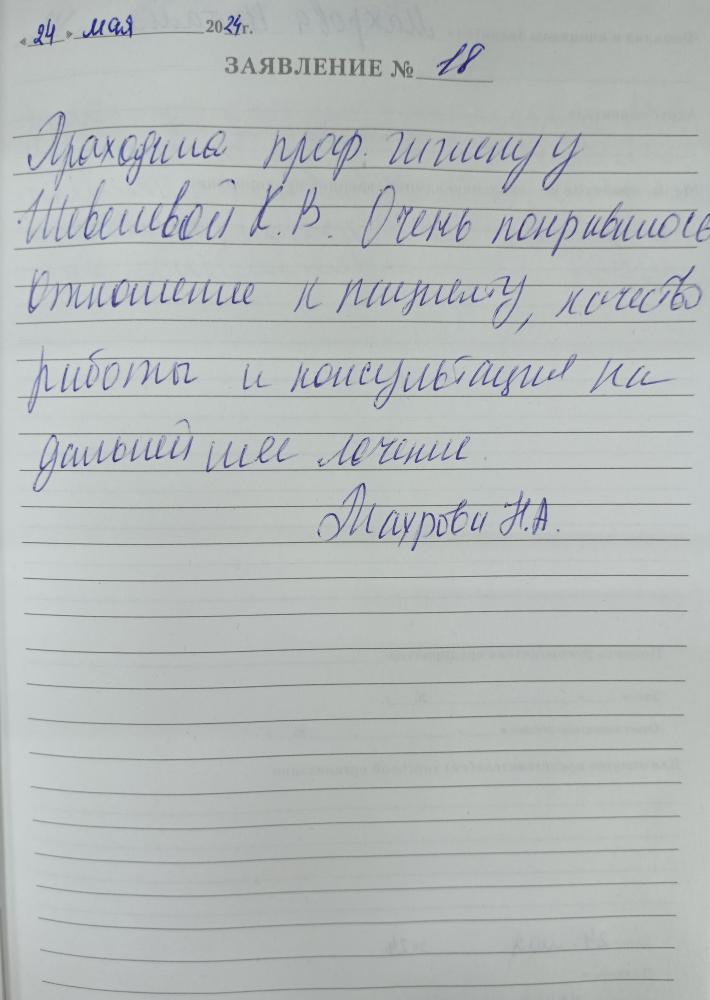 « 24 » мая 2024г.
ЗАЯВЛЕНИЕ № 18
Проходила проф. гигиену у
Шевелевой К. В. Очень понравилось
отношение к пациенту, качество
работы и консультация на
дальнейшее лечение.
Махрова Н.А.